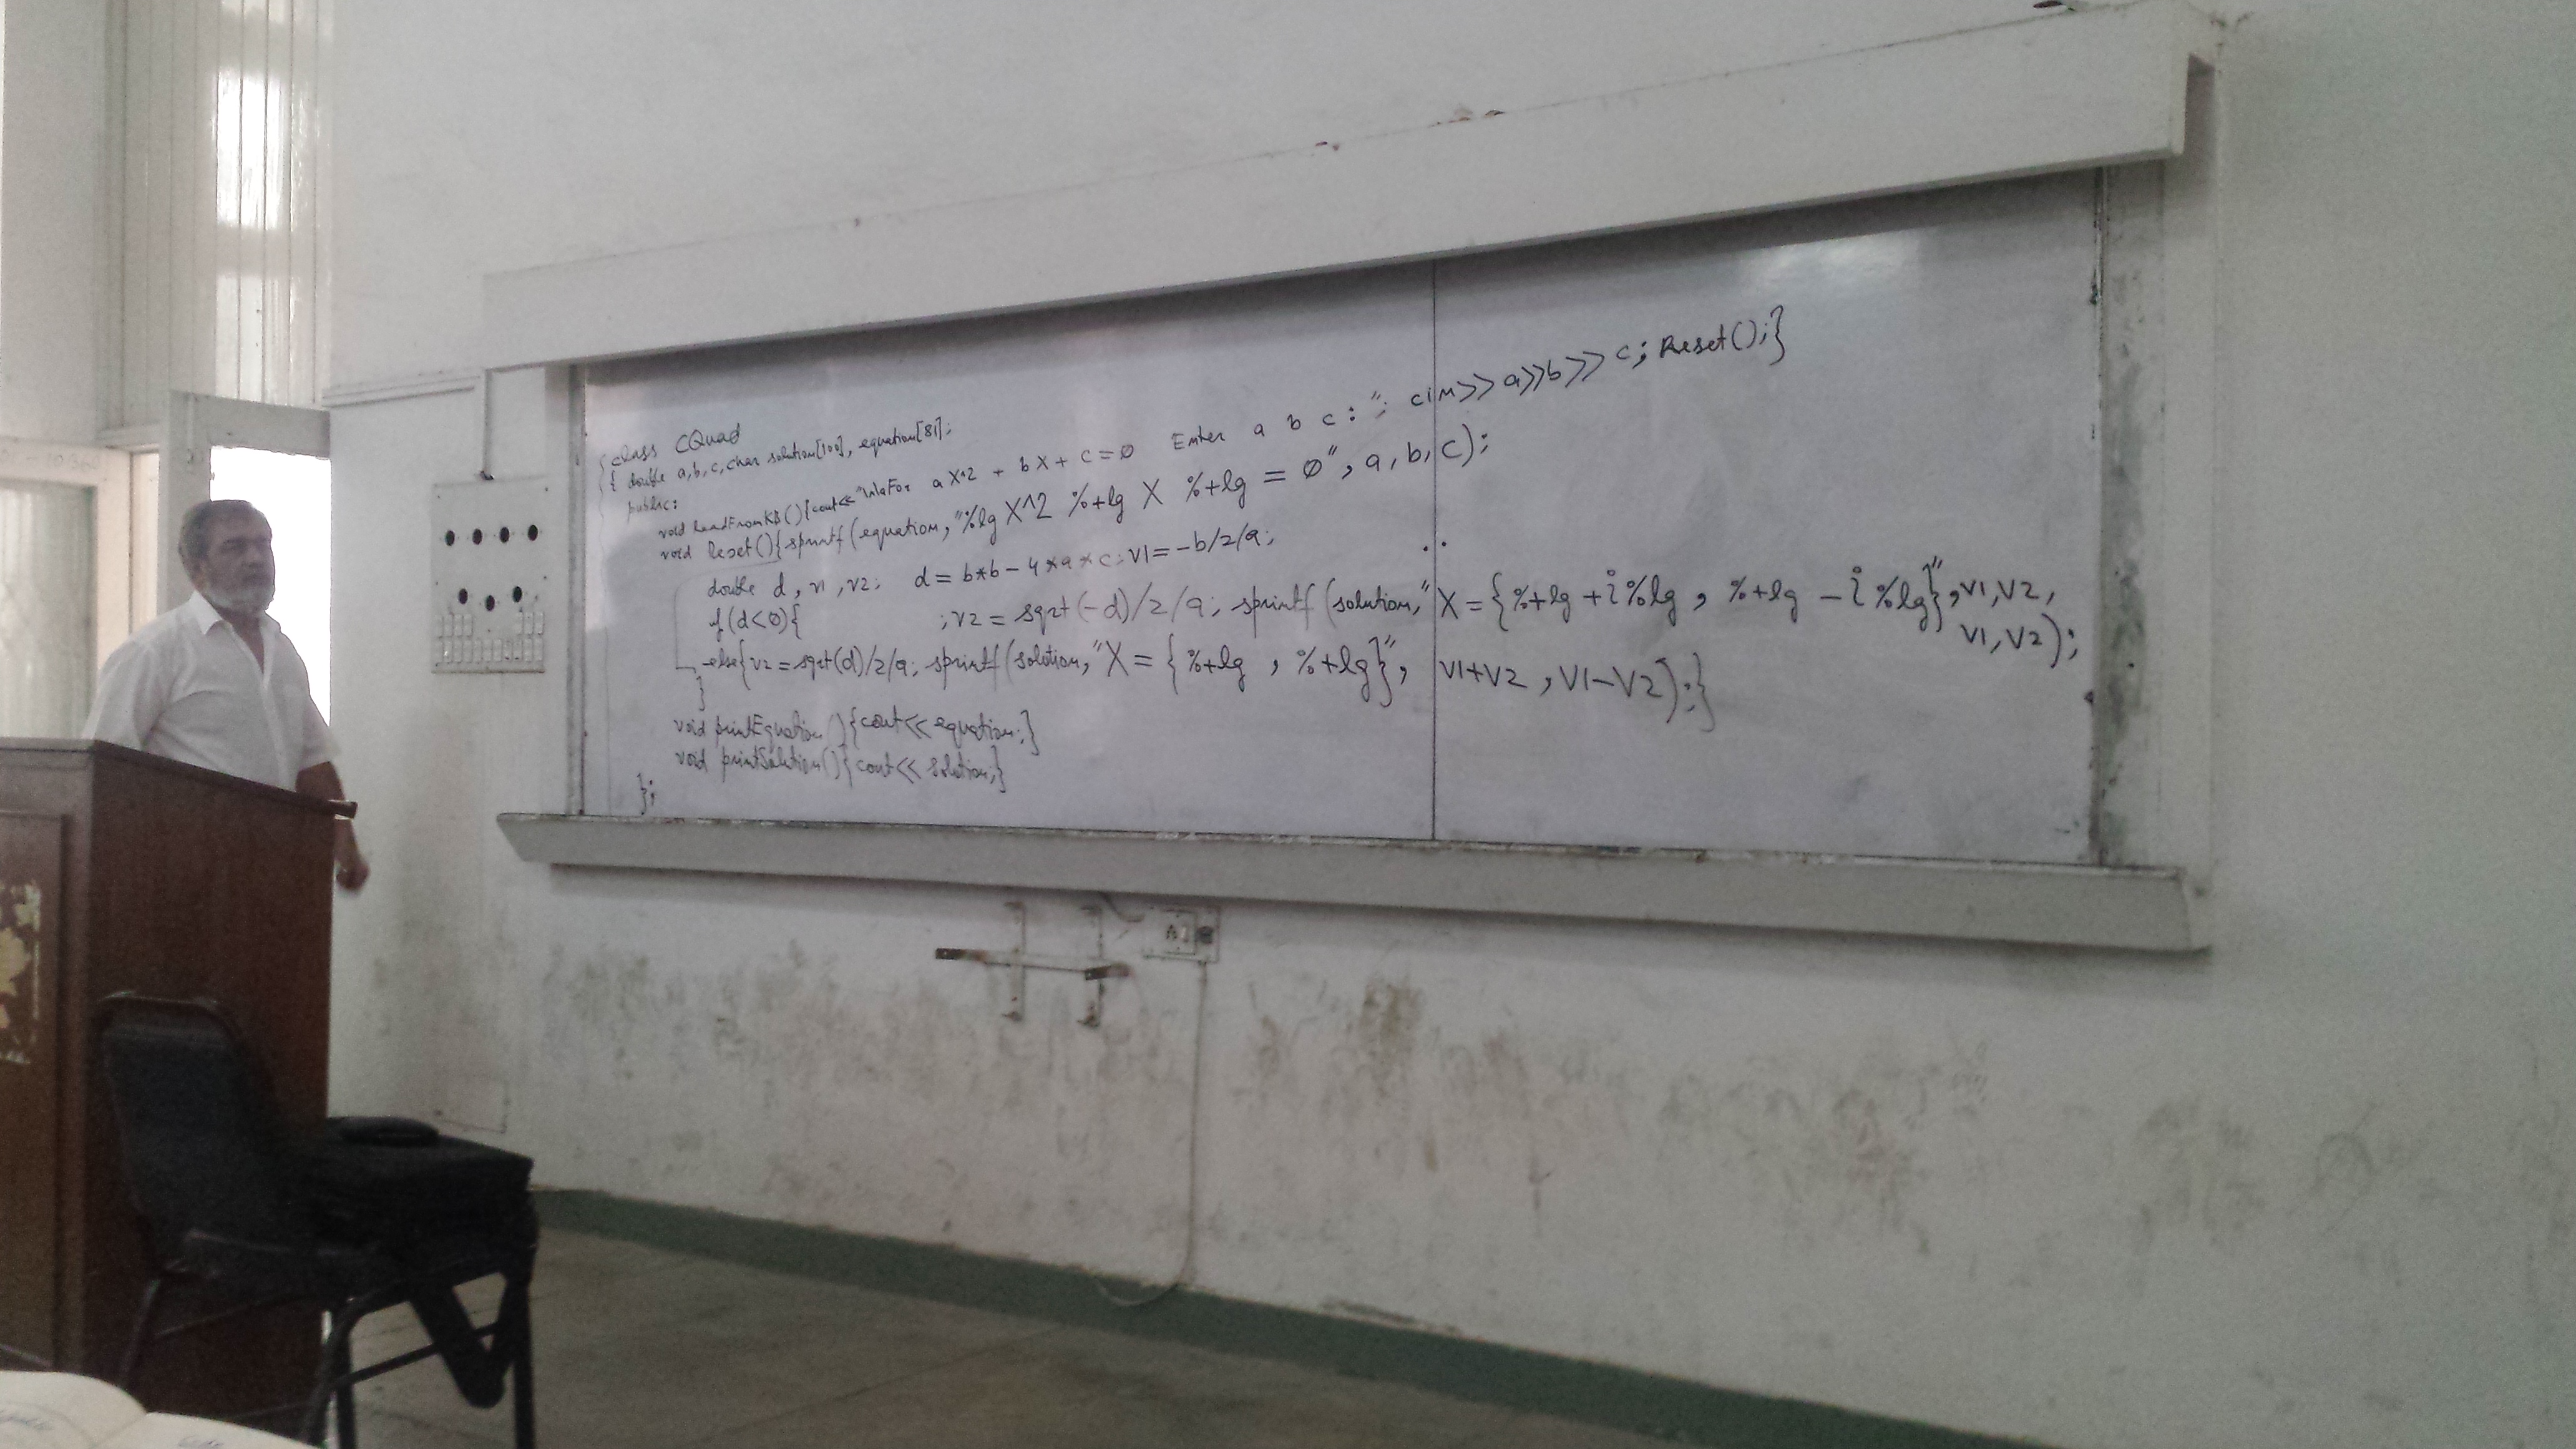 class CQuad
{ double a,b,c,char solution[100], equation[81];
public:
void ReadFromKB(){cout<<"\n\nFor a X^2 + bX + c = 0 Enter a b c : "; cin>>a>>b>>c; Reset();}
void Reset(){sprintf(equation,"%lg X^2 %+lg X %+lg = 0", a, b, c);
double d, v1, v2; d = b*b-4*a*c; v1=-b/2/a;
if(d<0){ ;v2 = sqrt(-d)/2/a; sprintf(solution,"X={%+lg +i%lg, %+lg -i%lg}",v1,v2,
v1,v2);
else{v2=sqrt(d)/2/a; sprintf(solution,"X={%+lg, %+lg}", v1+v2, v1-v2);}
}
void printEquation(){cout<<equation;}
void printSolution(){cout<< solution;}
};